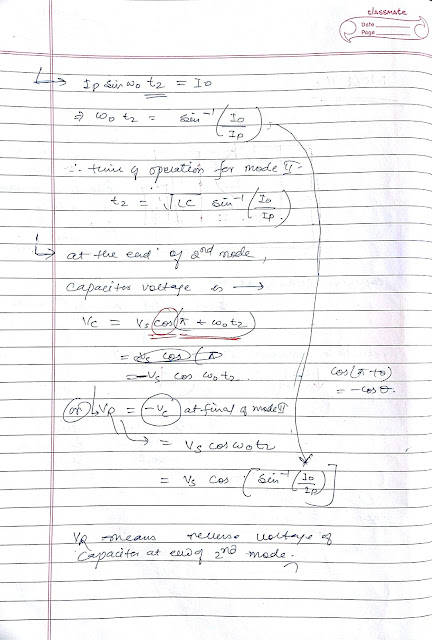 classmate
Date
Page
↳ Ip sin ω₀ t₂ = I₀
⇒ ω₀ t₂ = sin⁻¹ (I₀/Ip)
∴ time of operation for mode II -
t₂ = √LC sin⁻¹ (I₀/Ip)
↳ at the end of 2nd mode,
capacitor voltage is →
Vc = Vs cos(π + ω₀t₂)
= Vs cos (π
= -Vs cos ω₀t₂.
cos(π+θ)
= -cosθ.
or ↳ VR = -Vc at final of mode II
→ = Vs cos ω₀t₂
= Vs cos [sin⁻¹ (I₀/Ip)]
VR means reverse voltage of
capacitor at end of 2nd mode.